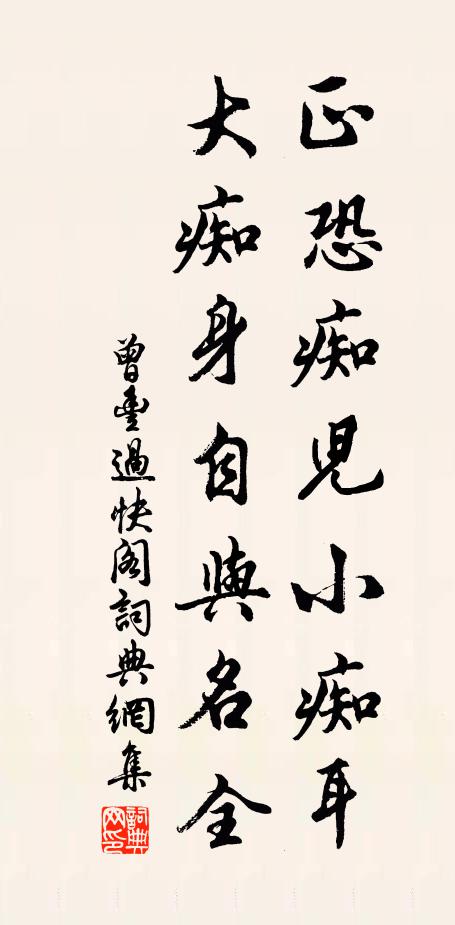 正恐痴児小痴耳
大痴身自與名全
曾豐過快阁詞典網集
詞典網印